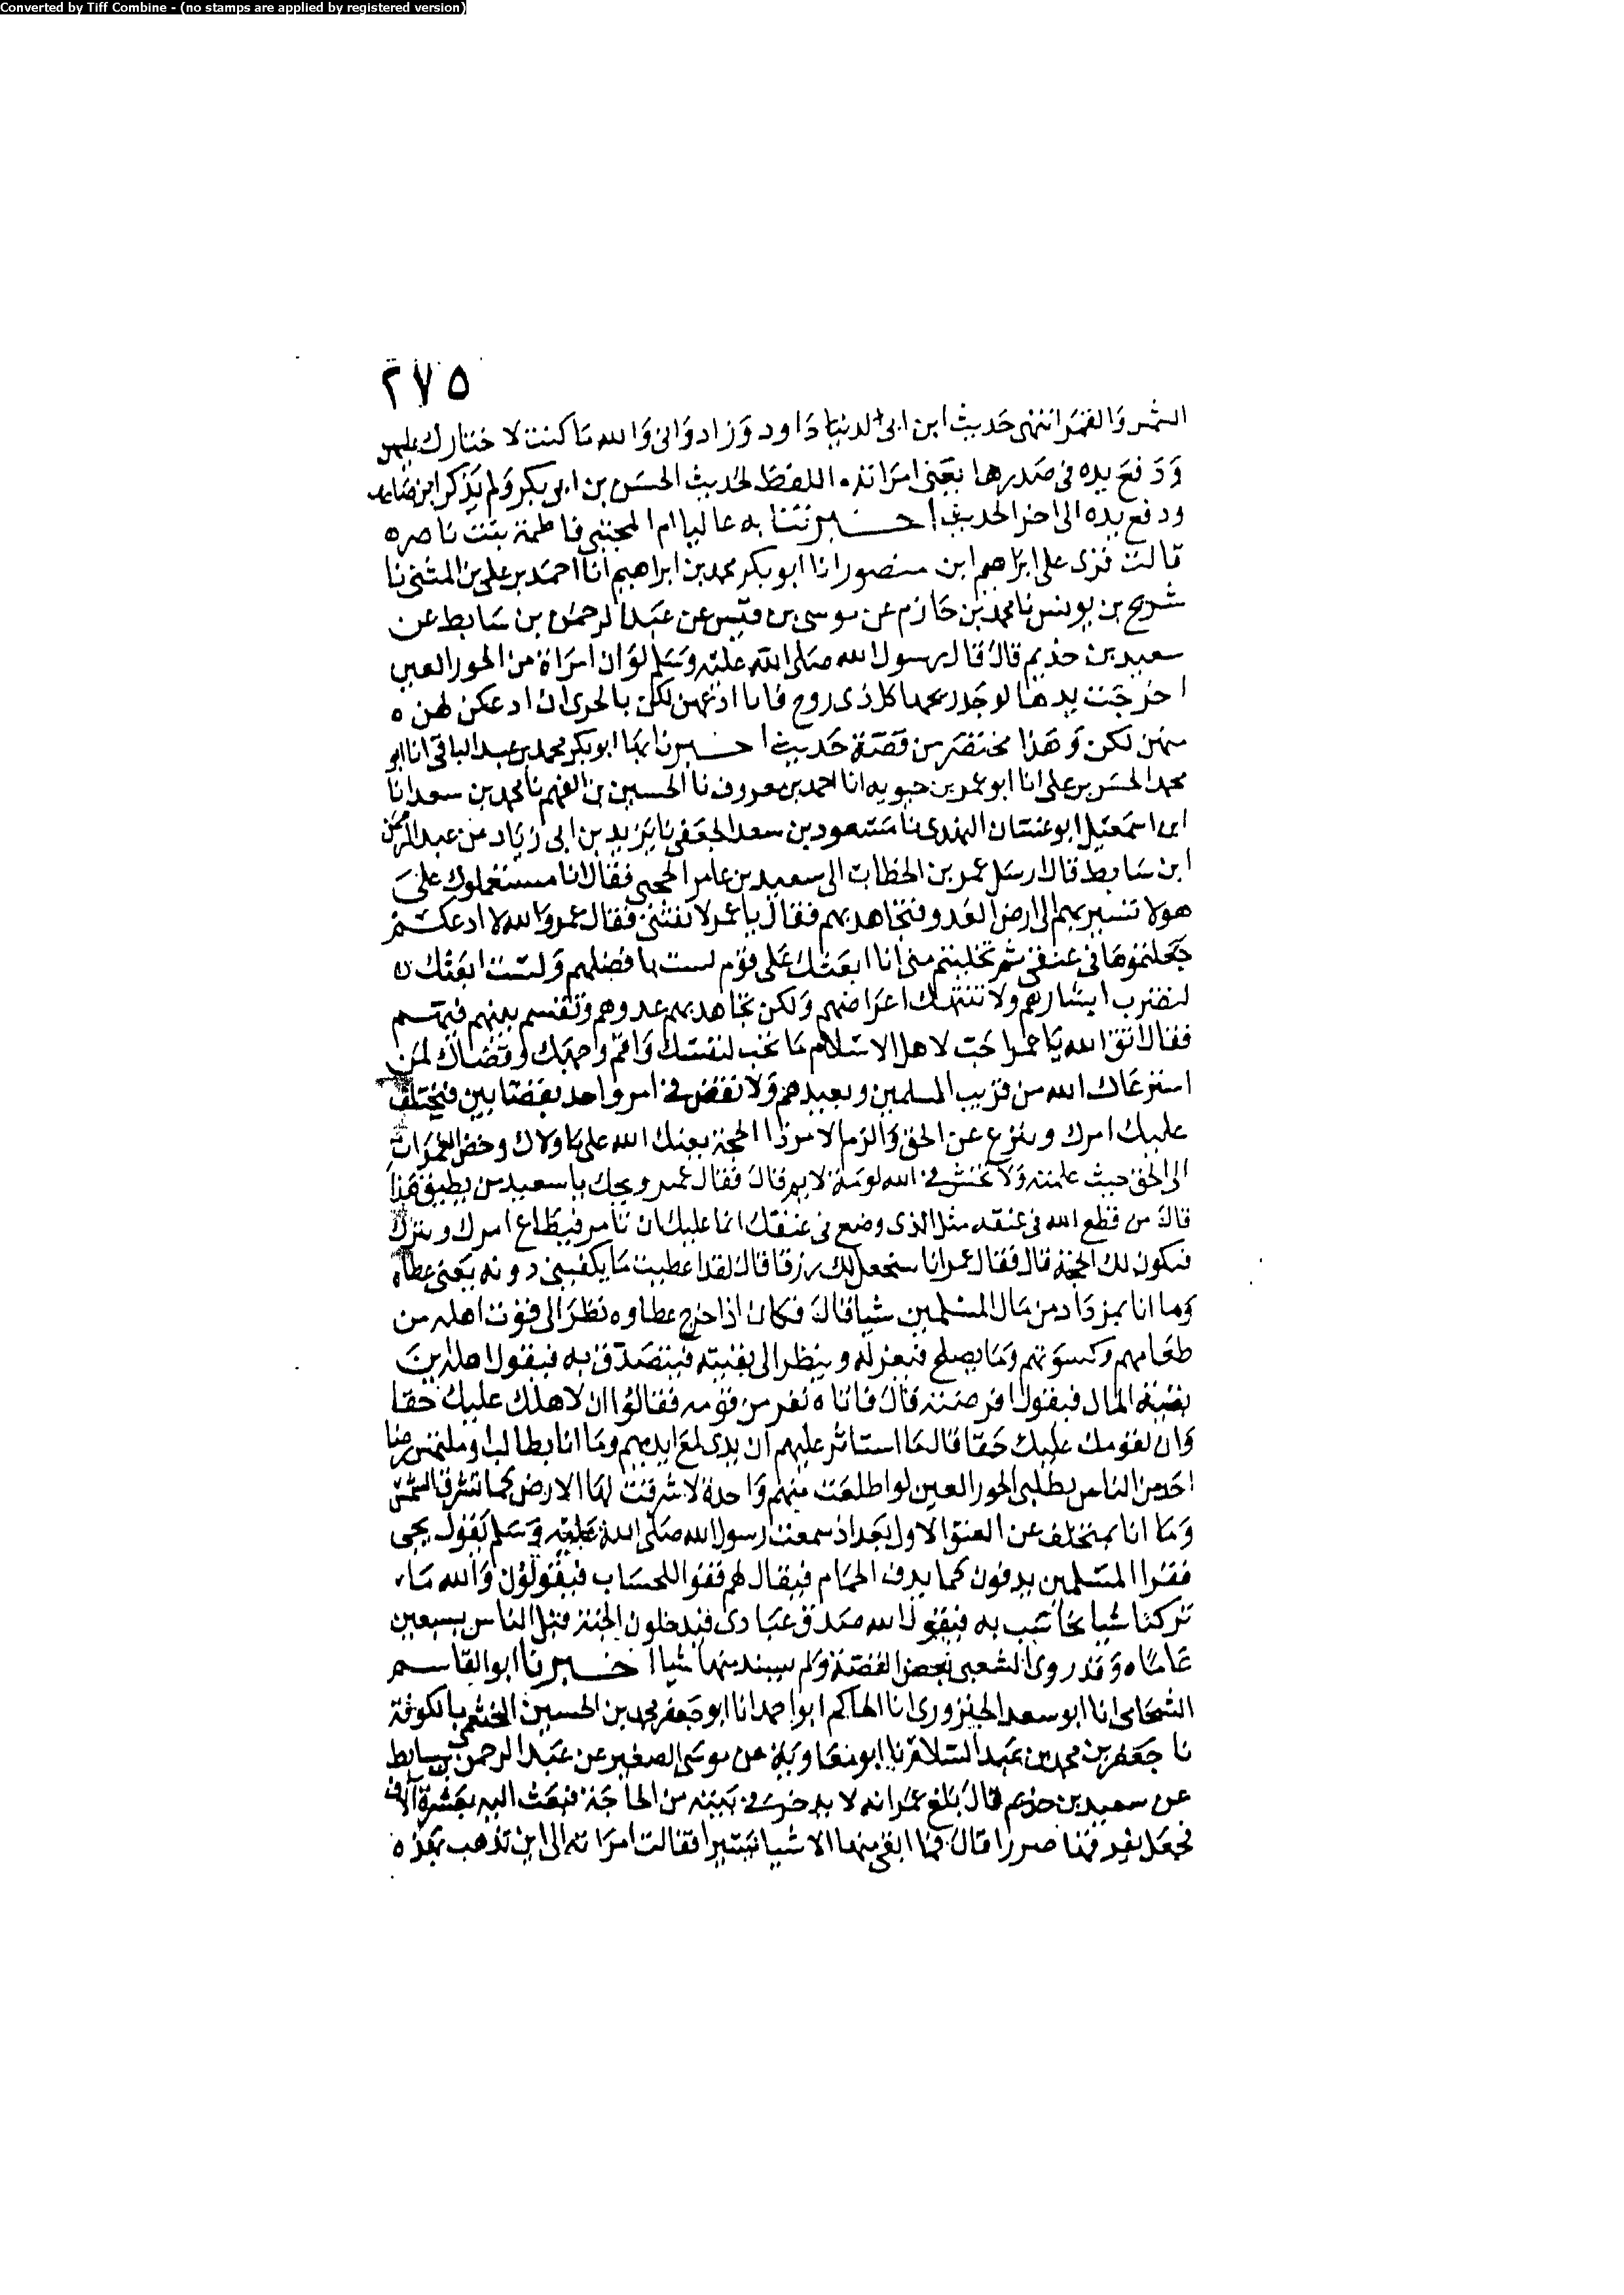 Converted by Tiff Combine - (no stamps are applied by registered version)
٢٧٥
الشمس والقمر انتهى حديث ابن ابي الدنيا داود وزاد واني والله ما كنت لاختارك عليهن
ودفع يده في صدرها يعني امراته اللفظ لحديث الحسن بن ابي بكر ولم يذكر ابن صاعد
ودفع يده الى اخر الحديث اخبرتنا به عاليا ام المجتبى فاطمة بنت ناصر ه
قالت قرى على ابراهيم ابن منصور انا ابو بكر محمد بن ابراهيم انا احمد بن علي بن المثنى نا
شريح بن يونس نا محمد بن حازم عن موسى بن قيس عن عبد الرحمن بن سابط عن
سعيد بن حذيم قال قال رسول الله صلى الله عليه وسلم لو ان امراة من الحور العين
اخرجت يدها لوجد ريحها كل ذي روح فانا ادعهن لكن بالحرى ان ادعكن لهن ه
منهن لكن وهذا مختصر من قصة حديث اخبرنا بها ابو بكر محمد بن عبد الباقي انا ابو
محمد الحسن بن علي انا ابو عمر بن حيويه انا احمد بن معروف نا الحسين بن الفهم نا محمد بن سعد انا
ابن اسمعيل ابو غسان النهدي نا مسعود بن سعد الجعفي نا يزيد بن ابي زياد عن عبد الرحمن
ابن سابط قال ارسل عمر بن الخطاب الى سعيد بن عامر الجمحي فقال انا مستعملوك على
هولا تسير بهم الى ارض العدو فتجاهد بهم فقال يا عمر لا تفتني فقال عمر والله لا ادعكم
جعلتموها في عنقي ثم تخليتم مني انا ابعثك على قوم لست بافضلهم ولست ابعثك ه
لتضرب ابشارهم ولا تنتهك اعراضهم ولكن تجاهد بهم عدوهم وتقسم بينهم فيهم
فقال اتق الله يا عمر احب لاهل الاسلام ما تحب لنفسك واقم وجهك وقضاك لمن
استرعاك الله من قريب المسلمين وبعيدهم ولا تقض في امر واحد بقضابين فيختلف
عليك امرك وينزع عن الحق والزم الامر ذا الحجة يعينك الله على ما ولاك وخض الغمرات
الى الحق حيث علمته ولا تخش في الله لومة لايم قال فقال عمر ويحك يا سعيد من يطيق هذا
قال من قطع الله في عنقه مثل الذي وضع في عنقك انما عليك ان تامر فيطاع امرك ويترك
فيكون لك الحجة قال فقال عمر انا سنجعل لك رزقا قال لقد اعطيت ما يكفيني دونه يعني عطاه
وما انا بمزداد من مال المسلمين شيا قال فكان اذا خرج عطاوه نظر الى قوت اهله من
طعامهم وكسوتهم وما يصلح فيعزله وينظر الى بقيته فيتصدق به فيقول اهله اين
بقية المال فيقول اقرضته قال فاتاه نفر من قومه فقالوا ان لاهلك عليك حقا
وان لقومك عليك حقا قال ما استاثر عليهم ان يدي لمع ايديهم وما انا بطالب او ملتمس رضا
احد من الناس بطلبي الحور العين لو اطلعت منهم واحدة لاشرقت لها الارض كما تشرق الشمس
وما انا بمتخلف عن العنق الاول بعد اذ سمعت رسول الله صلى الله عليه وسلم يقول يجي
فقرا المسلمين يدفون كما يدف الحمام فيقال لهم قفوا للحساب فيقولون والله ما
تركنا شيا نحاسب به فيقول الله صدق عبادي فيدخلون الجنة قبل الناس بسبعين
عاما ه وقد روى الشعبي بعض القصة ولم يسند منها شيا اخبرنا ابو القاسم
الشحامي انا ابو سعد الجنزرودي انا الحاكم ابو احمد انا ابو جعفر محمد بن الحسين الخثعمي بالكوفة
نا جعفر بن محمد بن عبد السلام نا ابو معاوية عن موسى الصغير عن عبد الرحمن بن سابط
عن سعيد بن حذيم قال بلغ عمر انه لا يدخن في بيته من الحاجة فبعث اليه بعشرة آلاف
فجعل يفرقها صررا قال فما ابقى منها الا شيا يسيرا فقالت امراته الى اين تذهب بهذه